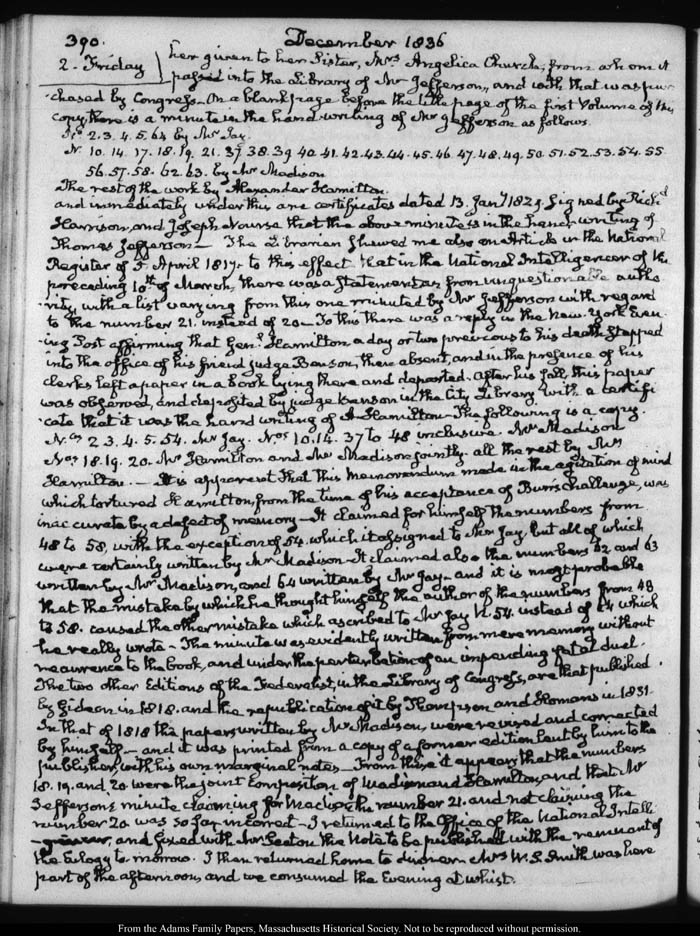 390.
December 1836
2. Friday
her given to her Sister, Mrs Angelica Church; from whom it
passed into the Library of Mr Jefferson, and with that was pur-
chased by Congress. On a blank page before the title page of the first Volume of this
copy, there is a minute in the hand writing of Mr Jefferson as follows.
Nos 2. 3. 4. 5. 64 by Mr Jay.
N. 10. 14. 17. 18. 19. 21. 37 38. 39 40. 41. 42. 43. 44. 45. 46 47. 48. 49. 50. 51. 52. 53. 54. 55
56. 57. 58. 62. 63. by Mr Madison
The rest of the work by Alexander Hamilton.
and immediately under this are certificates dated 13. Jany 1829. Signed by Richd
Harrison, and Joseph Nourse that the above minute is in the hand writing of
Thomas Jefferson— The Librarian shewed me also an Article in the National
Register of 5 April 1817. to this effect that in the National Intelligencer of the
preceding 10th of March, there was a Statement as from unquestionable autho-
rity, with a list varying from this one minuted by Mr Jefferson with regard
to the number 21. instead of 20— To this there was a reply in the New-York Even-
ing Post affirming that Genl Hamilton a day or two previous to his death stepped
into the office of his friend judge Benson, then absent, and in the presence of his
clerks left a paper in a book lying there and departed. After his fall, this paper
was observed, and deposited by judge Benson in the City Library, with a certifi-
cate that it was the hand writing of A Hamilton— The following is a copy.
Nos 2 3. 4. 5. 54. Mr Jay. Nos 10. 14. 37 to 48 inclusive Mr Madison
Nos 18. 19. 20. Mr Hamilton and Mr Madison jointly. all the rest by Mr
Hamilton.— It is apparent that this Memorandum made in the agitation of mind
which tortured Hamilton, from the time of his acceptance of Burr's challenge, was
inaccurate by a defect of memory— It claimed for himself the numbers from
48 to 58, with the exception of 54. which it assigned to Mr Jay, but all of which
were certainly written by Mr Madison— It claimed also the numbers 62 and 63
written by Mr Madison, and 64 written by Mr Jay— and it is most probable
that the mistake by which he thought himself the author of the numbers from 48
to 58. caused the other mistake which ascribed to Mr Jay N. 54. instead of 64 which
he really wrote— The minute was evidently written from mere memory without
recurrence to the book, and under the perturbation of an impending fatal duel.
The two other Editions of the Federalist, in the Library of Congress, are that published
by Gideon in 1818. and the republication of it by Thompson and Homans in 1831.
In that of 1818 the papers written by Mr Madison, were revised and corrected
by himself— and it was printed from a copy of a former edition lent by him to the
publisher, with his own marginal notes— From these it appears that the numbers
18. 19. and 20 were the joint composition of Madison and Hamilton, and that Mr
Jefferson's minute claiming for Madison the number 21. and not claiming the
number 20 was so far incorrect— I returned to the Office of the National Intelli-
gencer, and fixed with Mr Seaton the Note to be published with the remnant of
the Eulogy to morrow. I then returned home to dinner— Mrs W. S. Smith was here
part of the afternoon, and we consumed the Evening at whist.
From the Adams Family Papers, Massachusetts Historical Society. Not to be reproduced without permission.